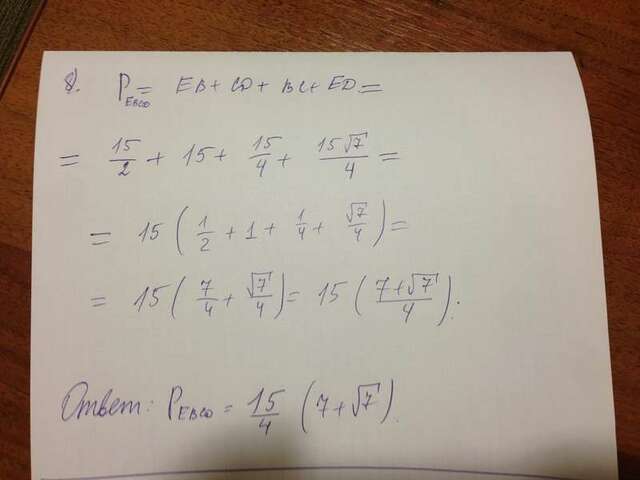 8. P_EBCD = EB + CD + BC + ED =
= 15/2 + 15 + 15/4 + 15√7/4 =
= 15 ( 1/2 + 1 + 1/4 + √7/4 ) =
= 15 ( 7/4 + √7/4 ) = 15 ( (7+√7)/4 ).
Ответ: P_EBCD = 15/4 ( 7 + √7 ).